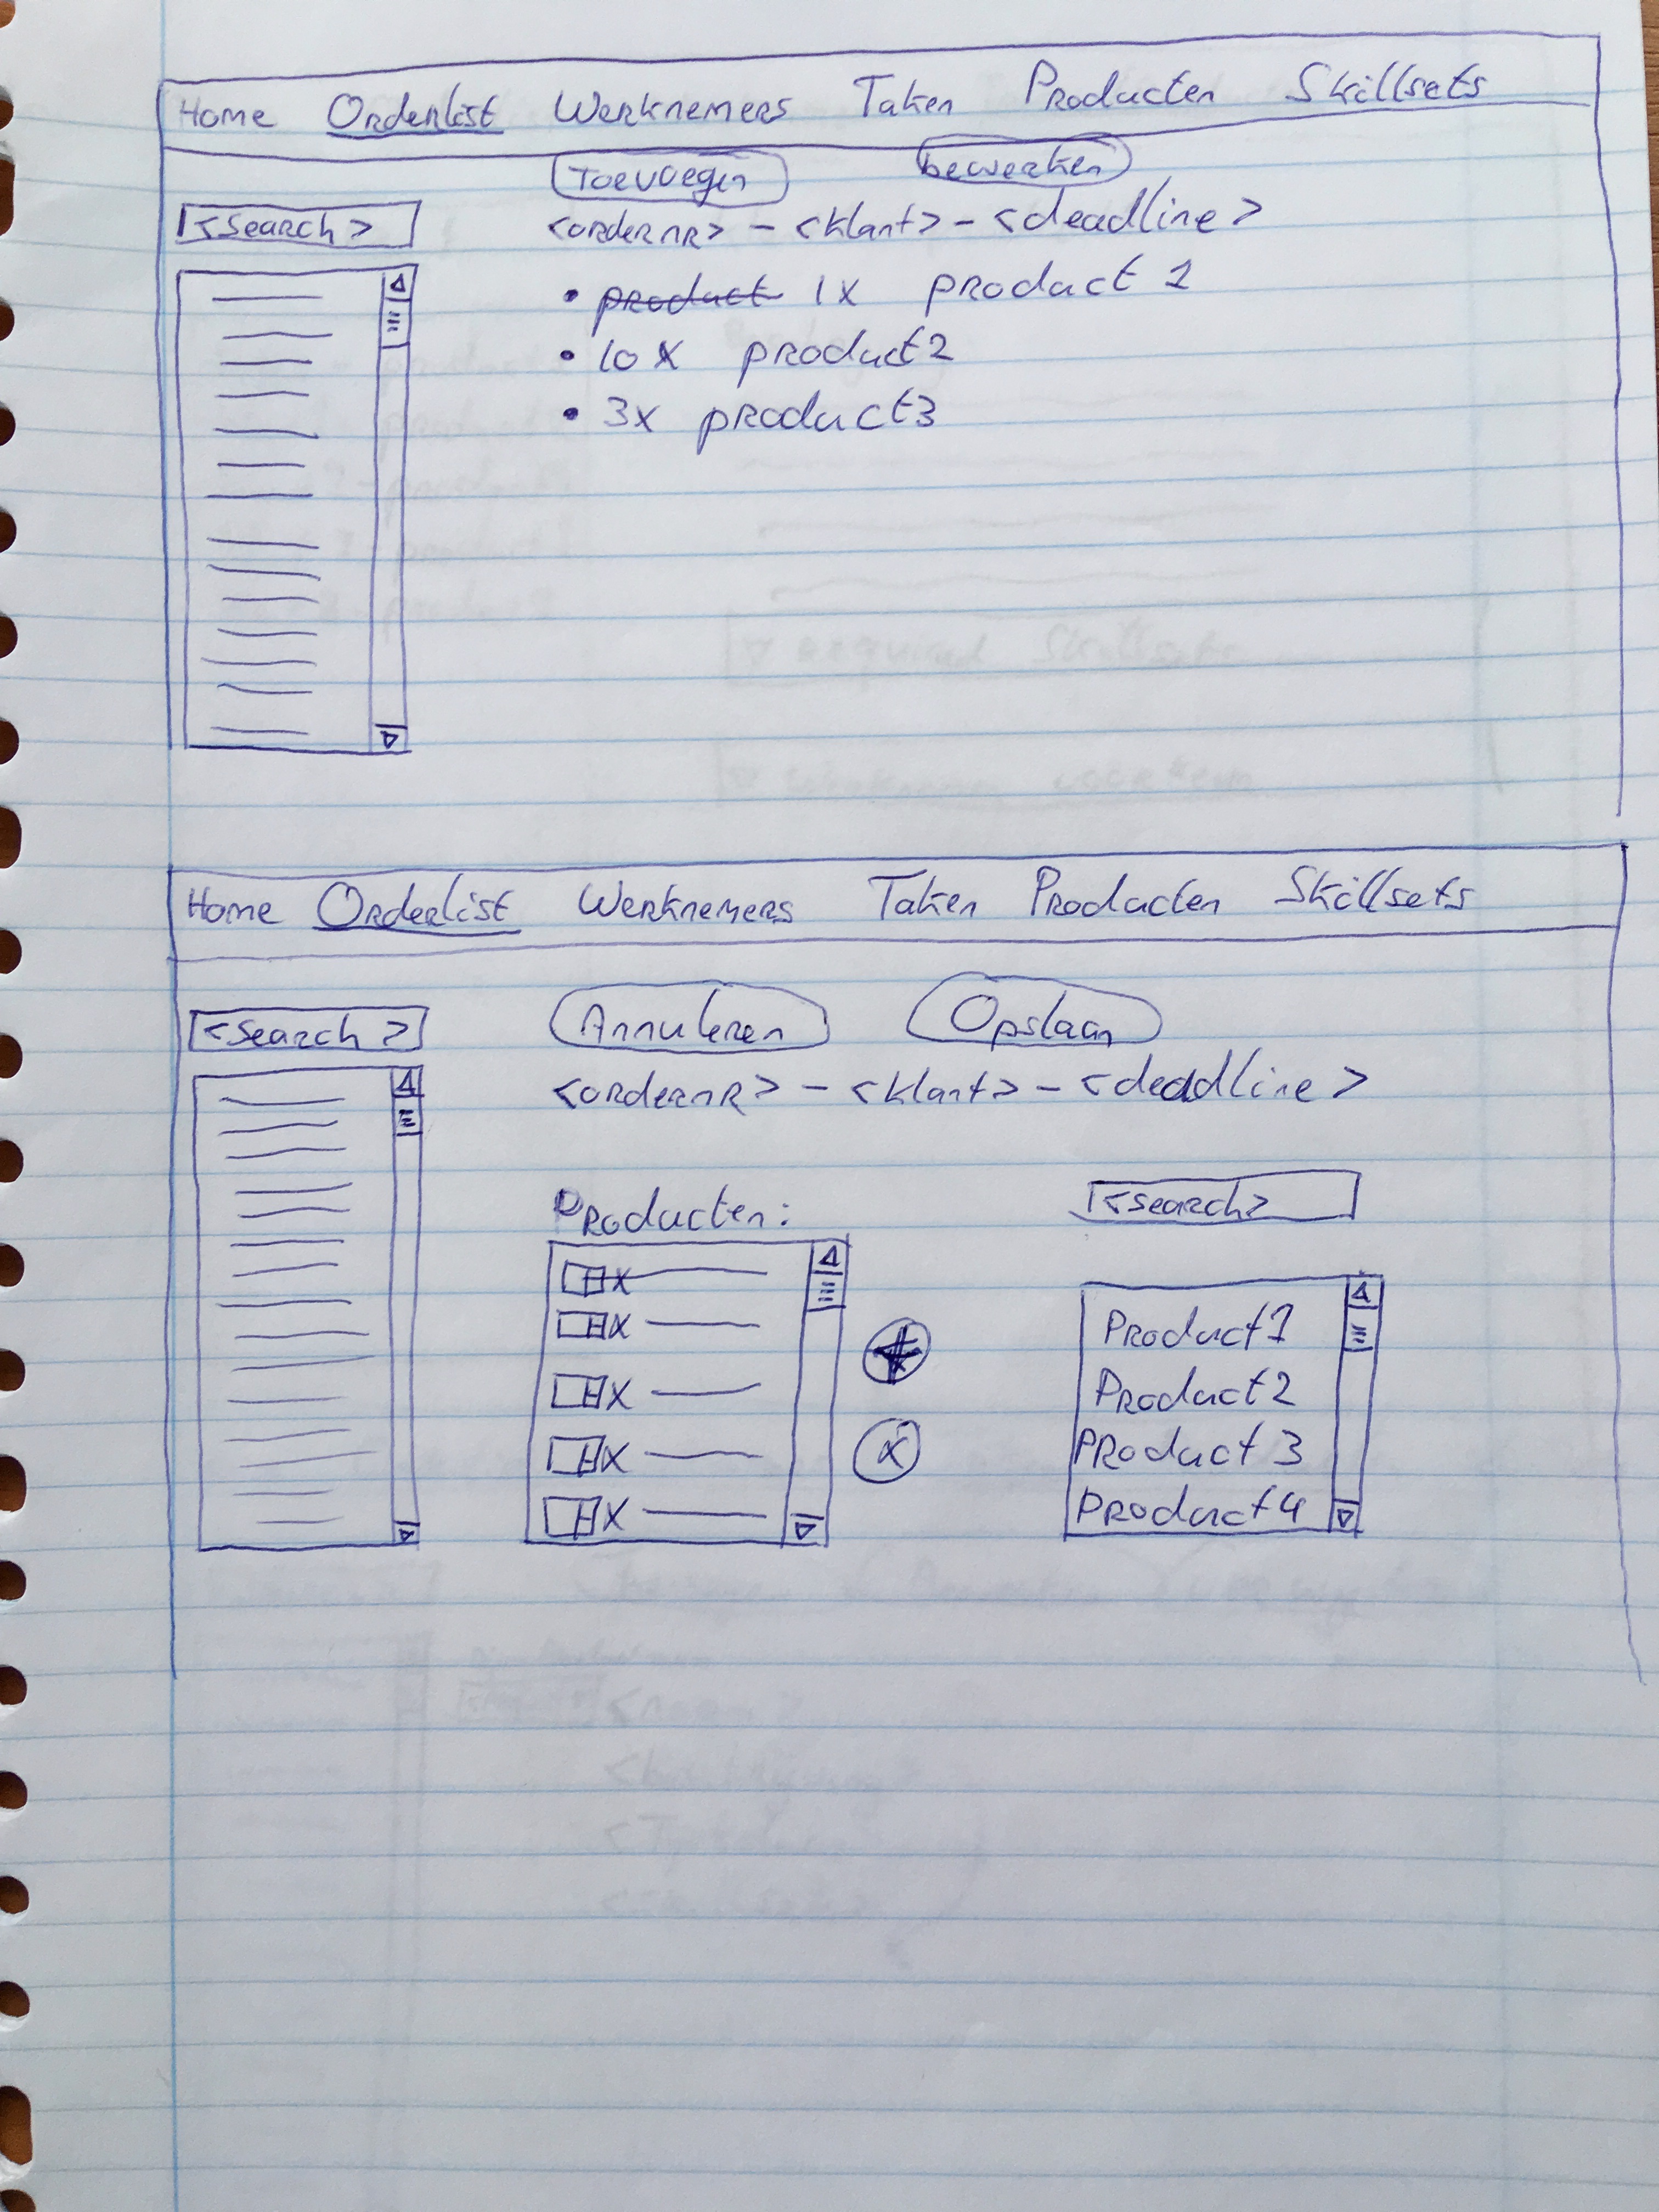 Home Orderlist Werknemers Taken Producten Skillsets
Toevoegen bewerken
<search>
<ordernr> - <klant> - <deadline>
• product 1x product 1
• 10x product2
• 3x product3
Home Orderlist Werknemers Taken Producten Skillsets
<search> Annuleren Opslaan
<ordernr> - <klant> - <deadline>
Producten: <search>
x
x
x
x
x
+
x
Product1
Product2
Product3
Product4